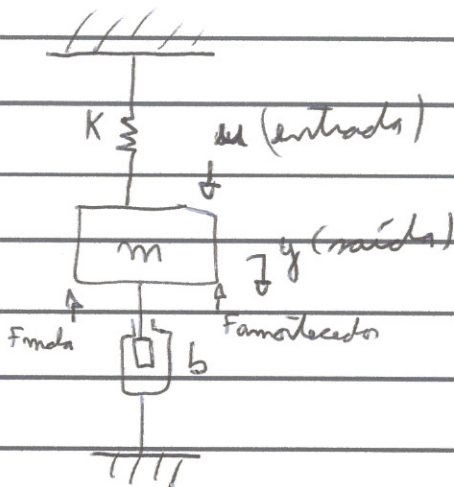 K
(entrada)
m
y (saída)
Fmola
Famortecedor
b